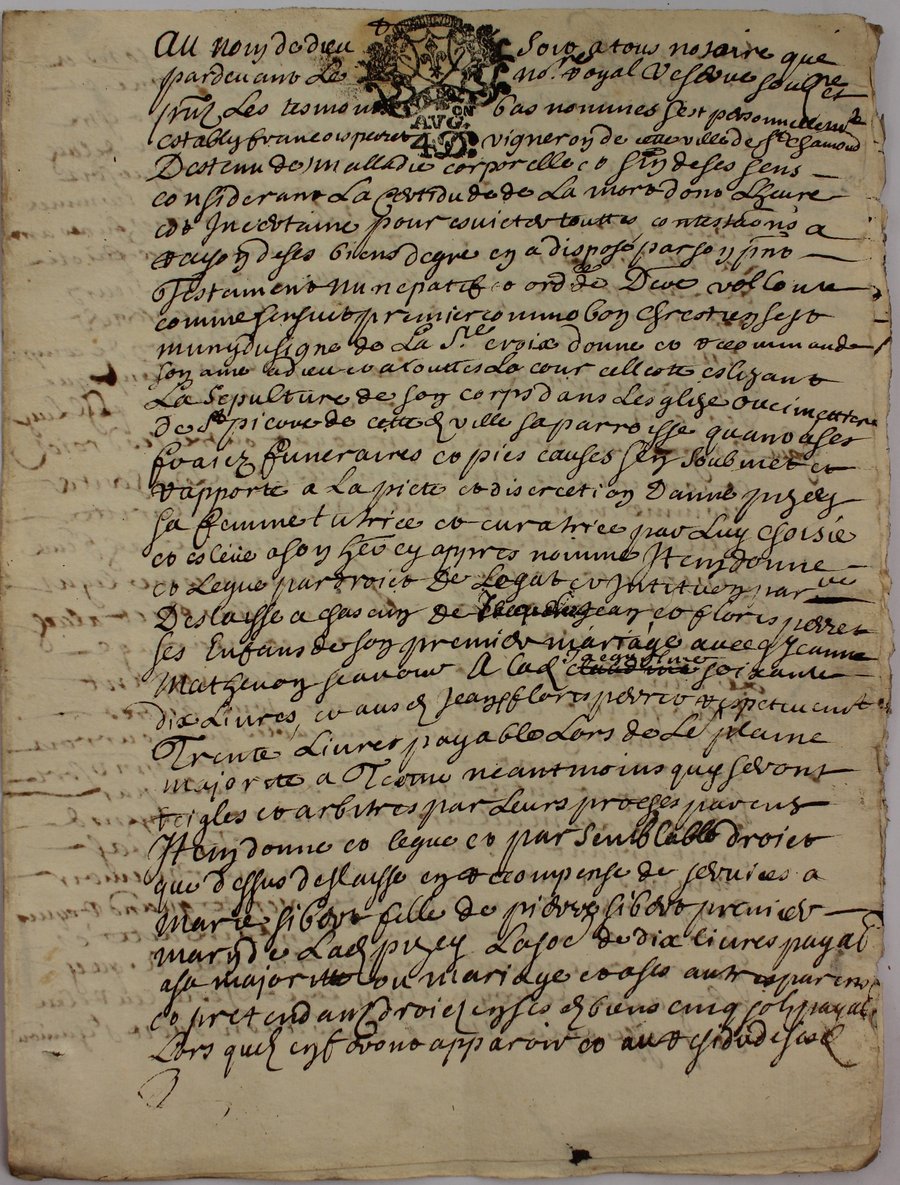 Au nom de dieu Soit a tous notoire que
pardevant Le no.re Royal Reserve soubz.ne et
pntz Les tesmoins bas nommes sest personnellem.t
estably francois peret vigneron de cette ville de St chamond
AVG.
Destenu de malladie corporelle et sein de ses sens
considerant La certidude de La mort dont Lheure
est Incertaine pour esviter touttes contestaons a
rayson de ses biens de gre en a disposé par son pnt
Testament nuncupatif et ord.ce De volonte
comme sensuit premier commo bon chrestien sest
muny du signe de La Ste croix donne et recommande
son ame a dieu et a touttes La cour celleste eslizant
La Sepulture de son corps dans Lesglize ou cimettiere
De St pierre de cette d ville sa parroisse quant a ses
fraiz funeraires et pies causes sen soubmet et
rapporte a La piete et discretion Danne
sa femme tutrice et curatrice par Luy choisie
et esleue a son her en appres nomme Item donne
et Legue par droict de Legat et Intitution par
Deslaisse a chascun de Jean et floris perret
ses Enfans de son premier mariage avec Jeanne
Mathevon scavoir A Lad soixante
dix Livres, et aus d Jean floris perret respectivem.t
Trente Livres payable Lors de Le plaine
majorite a Terme neantmoins quy seront
reigles et arbitres par Leurs proches parens
Item donne et legue et par semblable droict
que dessus deslaisse en recompense de services a
Marie sibert fille de pierre sibert premier
mary de Lad La so.e de dix livres payabl
a sa majoritte ou mariage et a ses autres parens
et pretendans droict en ses d biens cinq solz payabl
Lors quilz en feront apparoir et au residu de ses d